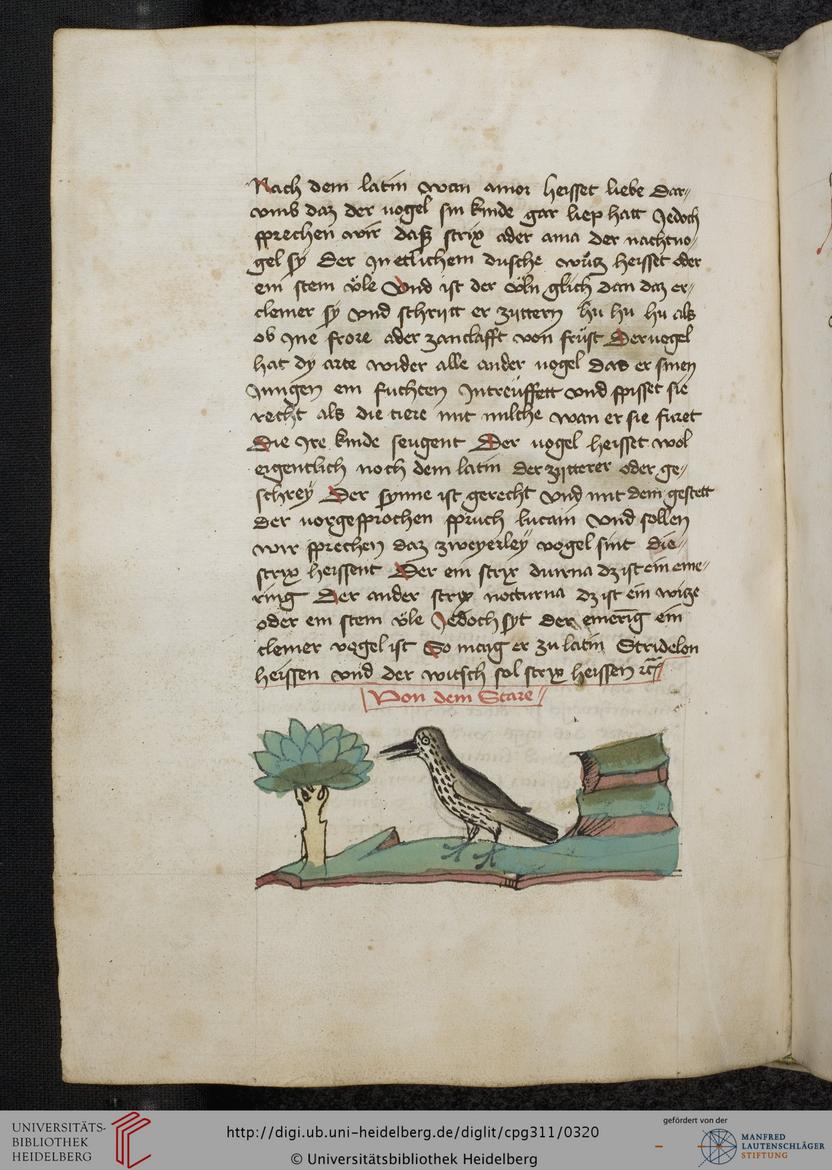 Nach dem latin wan amor heisset liebe Dar⸗
vmb daz der uogel sin kinde gar liep hatt Jedoch
sprechen wir daß strix ader ama der nachtuo⸗
gel sy Der In etlichem dusche heisset oder
ein stein v̈le Vnd ist der v̈ln glich dan daz er
cleiner sy vnd schrijtt er zijttern hu hu hu als
ob Ine frore ader zanclafft von früst Der uogel
hat dy arte wider alle ander uogel Das er sinen
Jungen ein fuchten vnd spisset sie
recht als die tiere mit milche wan er sie furet
Die Ire kinde seugent Der uogel heisset wol
eigentlich noch dem latin der zijtterer oder ge⸗
schreÿ Der synne ist gerecht vnd mit dem gestett
der uorgesprochen spruch lucain vnd sollen
wir sprechen daz zweyerleÿ vogel sint die⸗
strix heissent Der ein strix diurna dz ist ein eme⸗
ring Der ander strix nocturna dz ist ein wize
oder ein stein v̈le Jedoch syt der emering ein
cleiner vogel ist So mag er zu latin Stridelon
heissen vnd der witsch sol strix heissen
Von dem Stare
UNIVERSITÄTS-
BIBLIOTHEK
HEIDELBERG
http://digi.ub.uni-heidelberg.de/diglit/cpg311/0320
© Universitätsbibliothek Heidelberg
gefördert von der
MANFRED
LAUTENSCHLÄGER
STIFTUNG